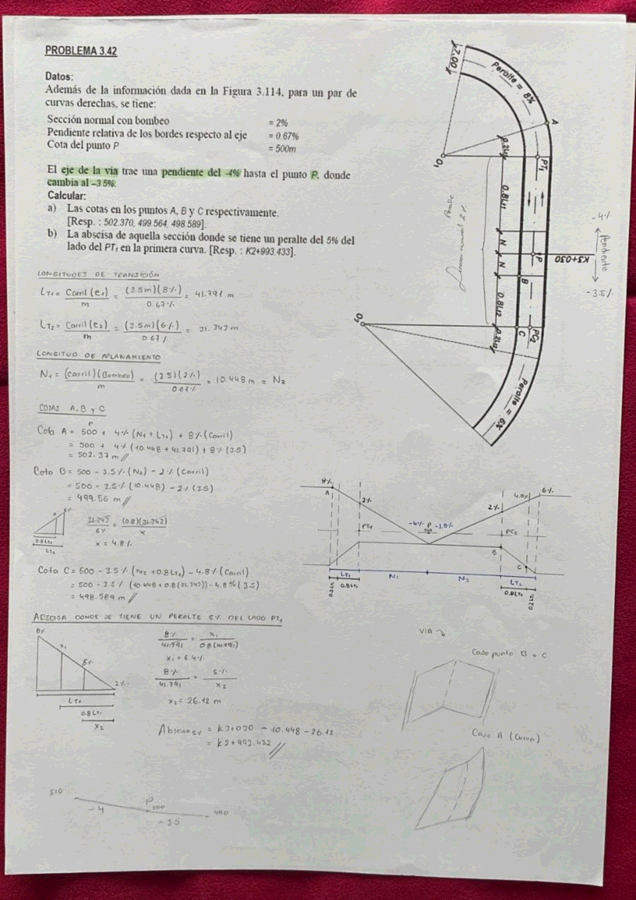 PROBLEMA 3.42
Datos:
Además de la información dada en la Figura 3.114, para un par de
curvas derechas, se tiene:
Sección normal con bombeo = 2%
Pendiente relativa de los bordes respecto al eje = 0.67%
Cota del punto P = 500m
El eje de la vía trae una pendiente del -4% hasta el punto P, donde
cambia al -3.5%.
Calcular:
a) Las cotas en los puntos A, B y C respectivamente.
[Resp. : 502.370, 499.564, 498.589].
b) La abscisa de aquella sección donde se tiene un peralte del 5% del
lado del PT₁ en la primera curva. [Resp. : K2+993.433].
LONGITUDES DE TRANSICIÓN
LT₁ = Carril (e₁) / m = (3.5m)(8%) / 0.67% = 41.791 m
LT₂ = Carril (e₂) / m = (3.5m)(6%) / 0.67% = 31.343 m
LONGITUD DE APLANAMIENTO
N₁ = (carril)(Bombeo) / m = (3.5)(2%) / 0.67% = 10.448 m = N₂
COTAS A, B y C
Cota A = 500 + 4% (N₁ + LT₁) + 8% (Carril)
= 500 + 4% (10.448 + 41.791) + 8% (3.5)
= 502.37 m //
Cota B = 500 - 3.5% (N₂) - 2% (Carril)
= 500 - 3.5% (10.448) - 2% (3.5)
= 499.56 m //
31.343 / 6% = (0.8)(31.343) / x
x = 4.8%
0.8LT₂
LT₂
Cota C = 500 - 3.5% (N₂ + 0.8LT₂) - 4.8% (Carril)
= 500 - 3.5% (10.448 + 0.8(31.343)) - 4.8% (3.5)
= 498.589 m //
ABSCISA DONDE SE TIENE UN PERALTE 5% DEL LADO PT₁
8%
x₁
5%
2%
LT₁
0.8LT₁
x₂
8% / 41.791 = x₁ / 0.8(41.791)
x₁ = 6.4%
8% / 41.791 = 5% / x₂
x₂ = 26.12 m
Abscisa 5% = K3+030 - 10.448 - 26.12
= K2+993.432 //
510
-4
P 500
-3.5
490
7.00
Peralte = 8%
A
O₁
PT₁
0.2Lt1
0.8Lt1
N
P
N
B
0.8Lt2
0.2Lt2
C
PC₂
O₂
Peralte = 6%
K3+030
-4%
Pendiente
-3.5%
8%
A
2%
PT₁
-4% P -3.5%
2%
4.8%
6%
PC₂
B
C
LT₁
0.2LT₁
0.8LT₁
N₁
N₂
LT₂
0.8LT₂
0.2LT₂
VIA
Caso punto B y C
Caso A (Curva)